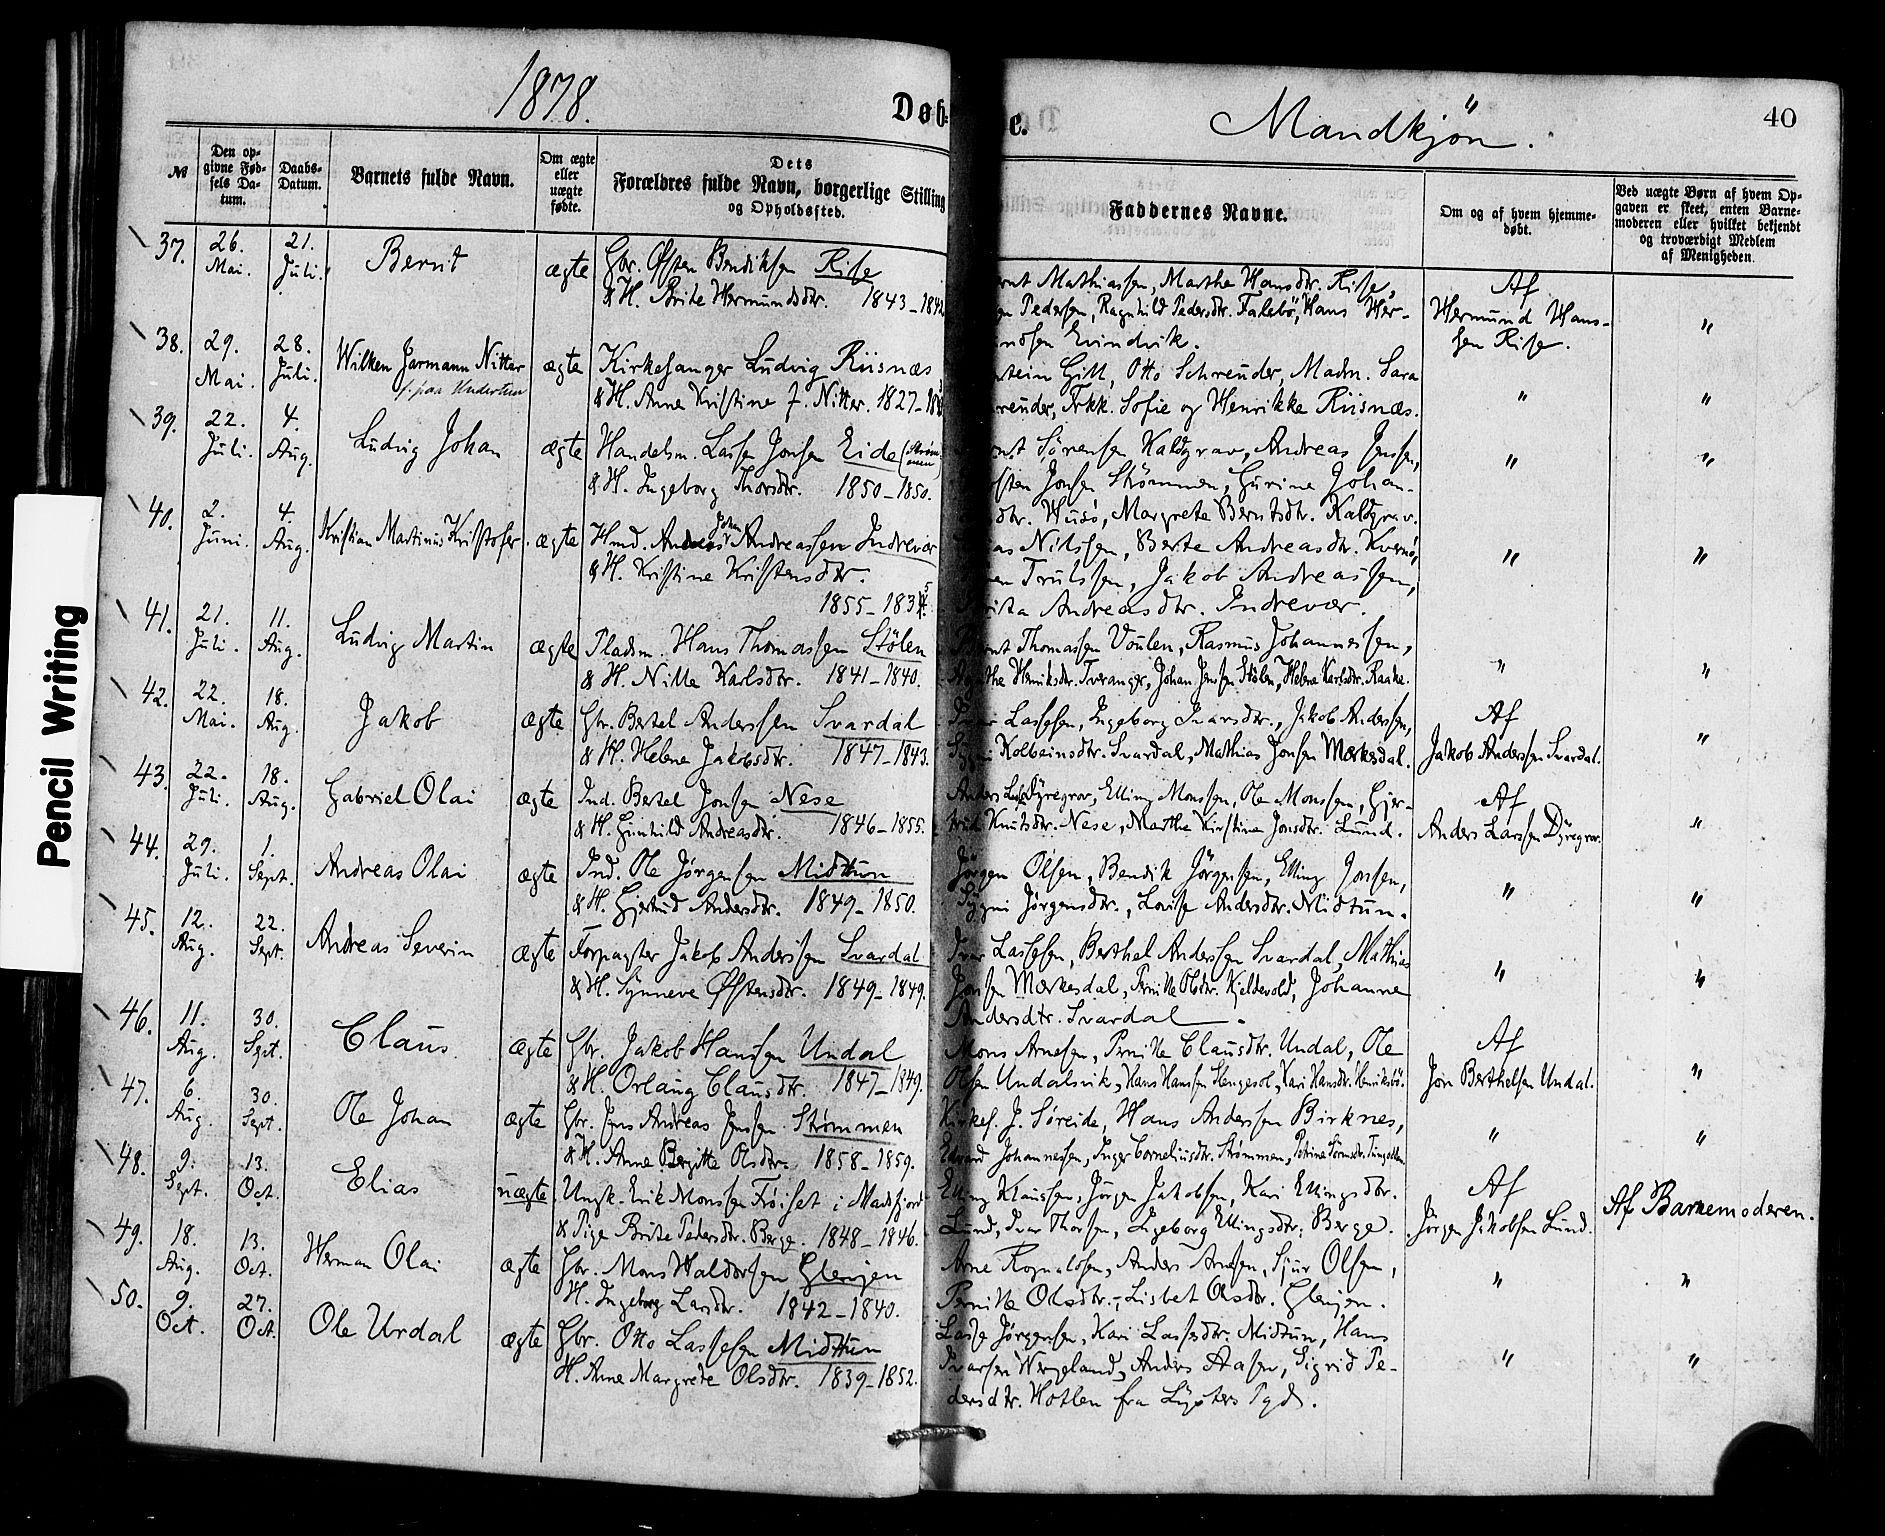 1878.
Døb-
e.
Mandkjön.
40
Pencil Writing
№
Den op-
givne Fød-
sels Da-
tum.
Daabs-
Datum.
Barnets fulde Navn.
Om ægte
eller
uægte
fødte.
Dets
Forældres fulde Navn, borgerlige Stilling
og Opholdssted.
Faddernes Navne.
Om og af hvem hjemme-
døbt.
Ved uægte Børn af hvem Op-
gaven er skeet, enten Barne-
moderen eller hvilket bekjendt
og troværdigt Medlem
af Menigheden.
37.
26.
Mai.
21.
Juli.
Bernt
ægte
Gbr. Østen Bendiksen Rise
& H. Brite Hermundsdtr. 1843-1842
Mathiassen, Marthe Hansdtr. Rise,
Pedersen, Ragnhild Pedersdtr. Falebö, Hans Her-
Evindvik.
Af
Hermund Hans-
sen Rise.
"
38.
29.
Mai.
28.
Juli.
Wilken Jarmann Nitter
f. paa Undertun
ægte
Kirkesanger Ludvig Riisnæs
& H. Anne Kristine f. Nitter. 1827-
Gill, Otto Schreuder, Madm. Sara
Frkk. Sofie og Henrikke Riisnæs.
"
"
39.
22.
Juli.
4.
Aug.
Ludvig Johan
ægte
Handelsm. Lasse Jonsen Eide
& H. Ingeborg Thorsdtr. 1850-1850.
Sørensen Kaldgrav, Andreas Jensen,
Jonsen Strömmen, Gurine Johan-
dtr. Husö, Margrete Berntsdtr. Kaldgrav.
"
"
40.
2.
Juni.
4.
Aug.
Kristian Martinus Kristofer.
ægte
Hmd. Andreas Johan Andreassen Indrevær
& H. Kristine Kristensdtr.
1855-183
Nilssen, Berte Andreasdtr. Kvernö,
Trulssen, Jakob Andreassen,
Andreasdtr. Indrevær.
"
"
41.
21.
Juli.
11.
Aug.
Ludvig Martin
ægte
Pladsm. Hans Thomassen Stölen
& H. Nille Karlsdtr. 1841-1840.
Thomassen Voulen, Rasmus Johannessen,
Henriksdtr. Tveranger, Johan Jensen Stölen, Helene Karlsdtr. Raake.
"
"
42.
22.
Mai.
18.
Aug.
Jakob
ægte
Gbr. Bertel Anderssen Svardal
& H. Helene Jakobsdtr. 1847-1843.
Lassesen, Ingeborg Ivarsdtr., Jakob Andersen,
Kolbeinsdtr. Svardal, Mathias Jonsen Mærkesdal.
Af
Jakob Anderssen Svardal.
"
43.
22.
Juli.
18.
Aug.
Gabriel Olai
ægte
Ind. Bertel Jonsen Nese
& H. Gunhild Andreasdtr. 1846-1855.
Anders Dyregrov, Elling Monssen, Ole Monssen, Gjer-
trud Knutsdtr. Nese, Marthe Kirstine Jonsdtr. Lund.
Af
Anders Larssen Dyregrov.
"
44.
29.
Juli.
1.
Sept.
Andreas Olai
ægte
Ind. Ole Jørgensen Midttun
& H. Gjertrud Andersdtr. 1849-1850.
Jörgen Olsen, Bendik Jörgensen, Elling Jonsen,
Sygni Jörgensdtr., Lovise Andersdtr. Midtun.
"
"
45.
12.
Aug.
22.
Sept.
Andreas Severin
ægte
Forpagter Jakob Anderssen Svardal
& H. Synneve Østensdtr. 1849-1849.
Ivar Lassesen, Berthel Anderssen Svardal, Mathias
Jonsen Mærkesdal, Pernille Olsdtr. Kjeldevold, Johanne
Andersdtr. Svardal.
"
"
46.
11.
Aug.
30.
Sept.
Claus
ægte
Gbr. Jakob Hanssen Undal
& H. Orlaug Clausdtr. 1847-1849.
Mons Arnesen, Pernille Clausdtr. Undal, Ole
Olsen Undalsvik, Hans Hanssen Hengesol, Kari Hansdtr. Henriksbö.
Af
Jon Berthelsen Undal.
"
47.
6.
Aug.
30.
Sept.
Ole Johan
ægte
Gbr. Jens Andreas Jenssen Strømmen
& H. Anne Bergitte Olsdtr. 1858-1859.
Kirkes. J. Søreide, Hans Anderssen Birknes,
Edvard Johannessen, Inger Corneliusdtr. Strømmen,
"
"
48.
9.
Sept.
13.
Oct.
Elias
uægte
Ungk. Erik Monssen Frøiset i Masfjord
& Pige Brite Pedersdtr. Berge. 1848-1846.
Elling Klaussen, Jörgen Jakobsen, Kari Ellingsdtr.
Lund, Ivar Thorsen, Ingeborg Ellingsdtr. Berge.
Af
Jörgen Jakobsen Lund.
Af Barnemoderen.
49.
18.
Aug.
13.
Oct.
Herman Olai
ægte
Gbr. Mons Waldorsen Glenjen
H. Ingeborg Larsdtr. 1842-1840.
Arne Rognaldsen, Anders Arnesen, Sjur Olsen,
Pernille Olsdtr., Lisbet Olsdtr. Glenjen.
"
"
50.
9.
Oct.
27.
Oct.
Ole Urdal
ægte
Gbr. Otto Lassesen Midttun
H. Anne Margrete Olsdtr. 1839-1852.
Lasse Jörgensen, Kari Lassesdtr. Midtun, Hans
Ivarsen Wergeland, Anders Aasen, Sigrid Pe-
dersdtr. Hotlen fra Lysters Pgd.
"
"